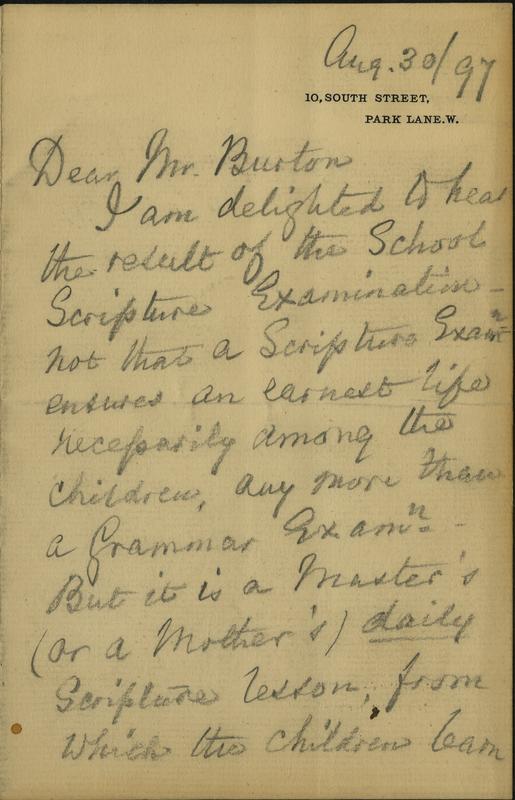 Aug. 30/97
10, SOUTH STREET,
PARK LANE. W.
Dear Mr. Burton
I am delighted to hear
the result of the School
Scripture Examination -
not that a Scripture Examn
ensures an earnest life
necessarily among the
children, any more than
a Grammar Examn. -
But it is a Master's
(or a Mother's) daily
Scripture lesson, from
which the children learn